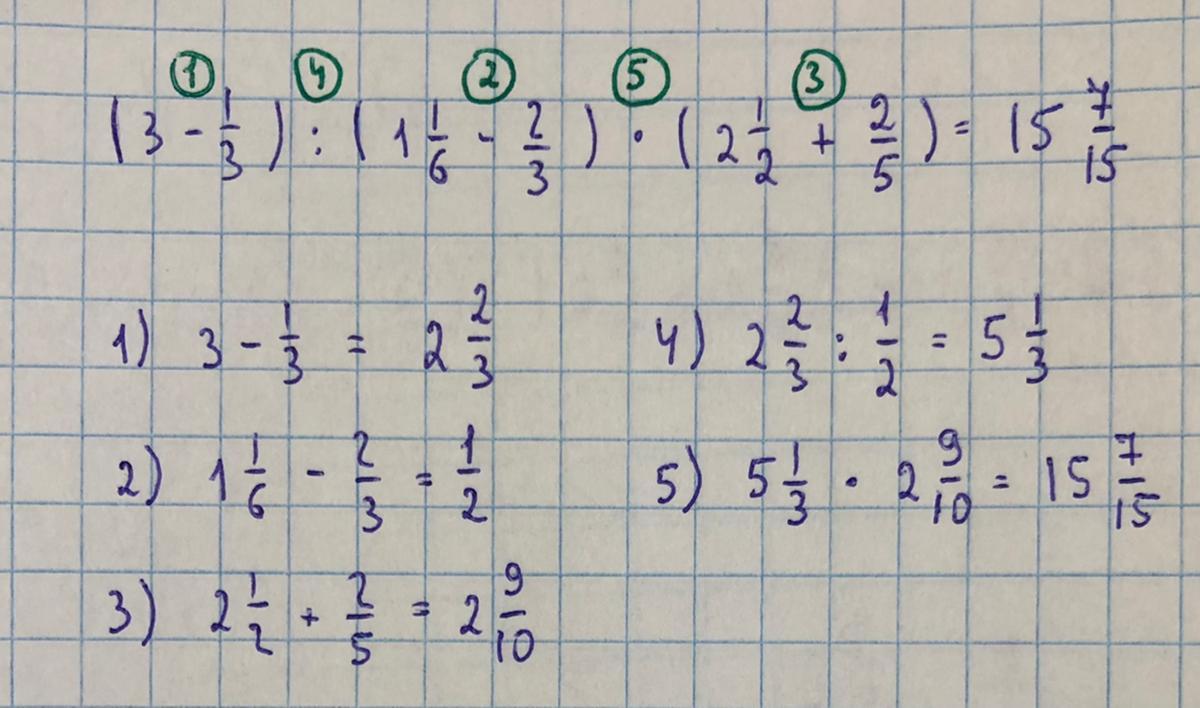 ① ④ ② ⑤ ③
(3 - 1/3) : (1 1/6 - 2/3) · (2 1/2 + 2/5) = 15 7/15
1) 3 - 1/3 = 2 2/3
2) 1 1/6 - 2/3 = 1/2
3) 2 1/2 + 2/5 = 2 9/10
4) 2 2/3 : 1/2 = 5 1/3
5) 5 1/3 · 2 9/10 = 15 7/15